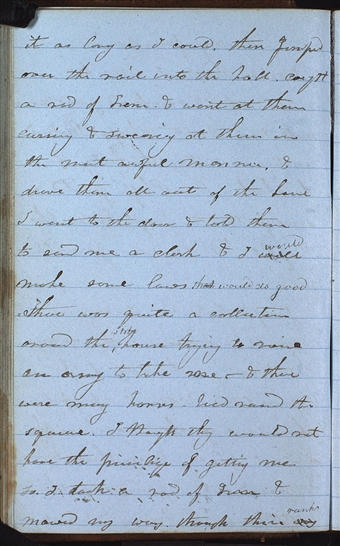 it as long as I could. then Jumped
over the rail into the hall. caught
a rod of Iren. & went at them
cursing & swearig at them in
the most awful manner. &
drove them all out of the house
I went to the door & told them
to send me a clerk & I would
make some laws that would do good
Thare was quite a collection
around the State house trying to rais
an army to take me — & thare
were many horses tied round the
square. I thought they would not
have the privilige of getting me
so I took a rod of Iren &
mowed my way through thire ranks